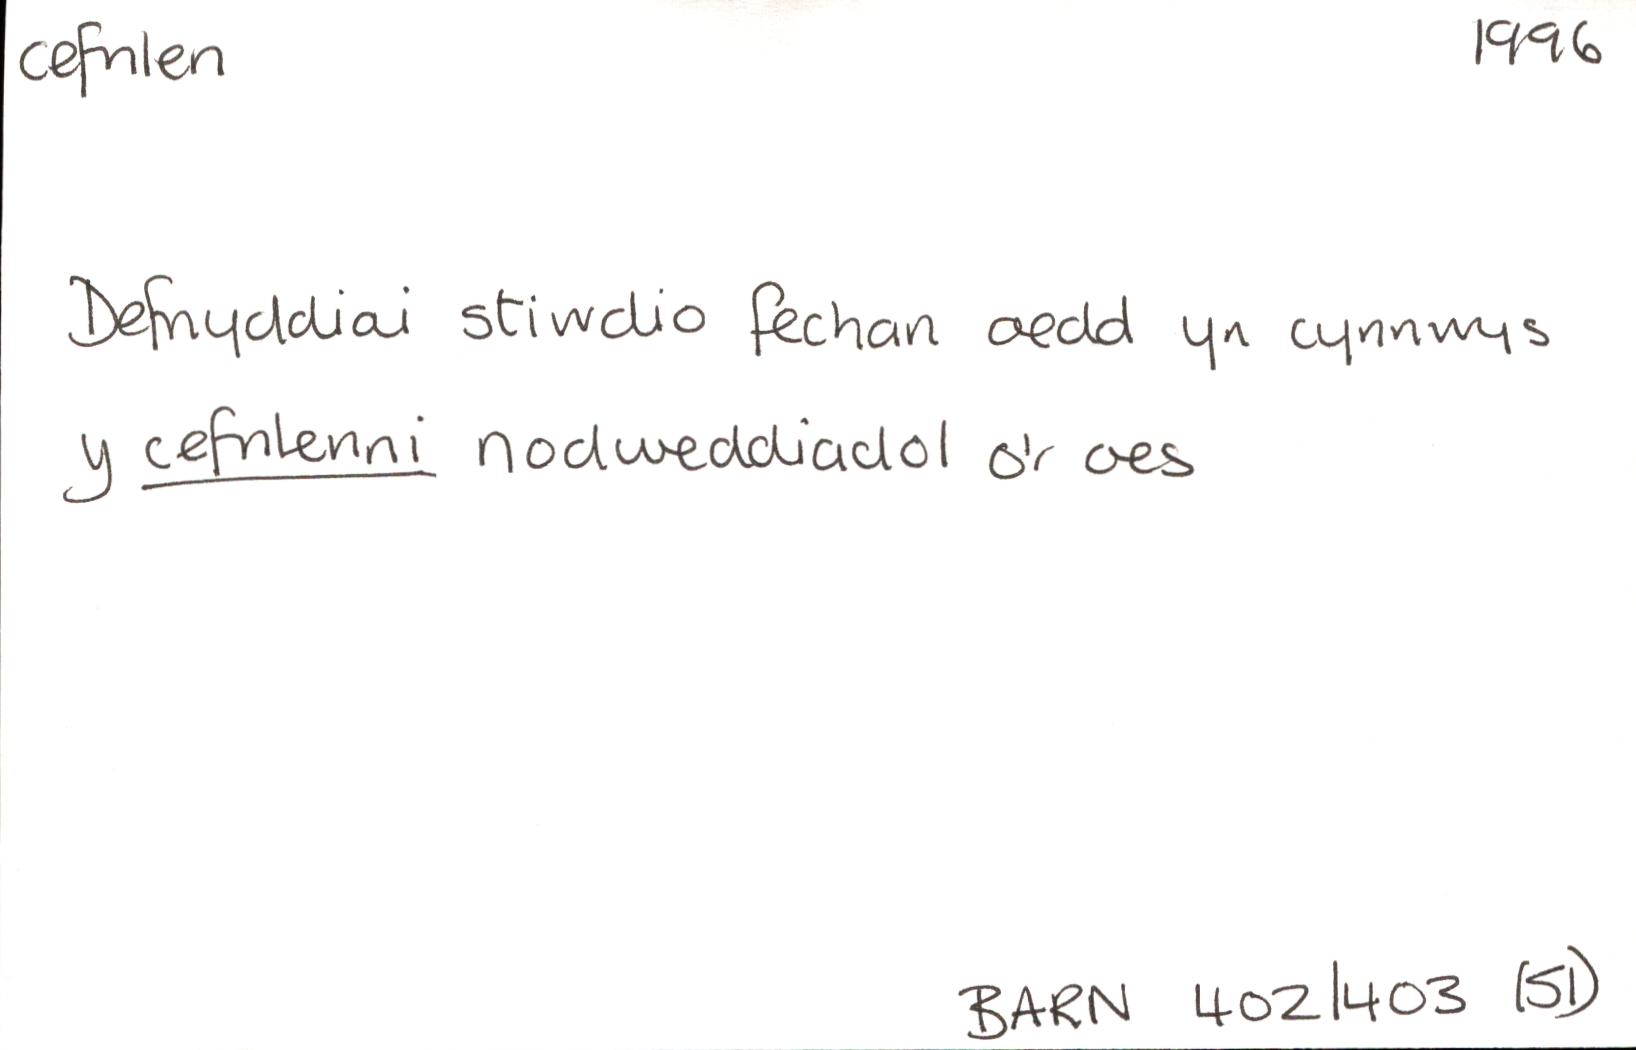 cefnlen 1996
Defnyddiai stiwdio fechan oedd yn cynnwys
y cefnlenni nodweddiadol o'r oes
BARN 402/403 (51)